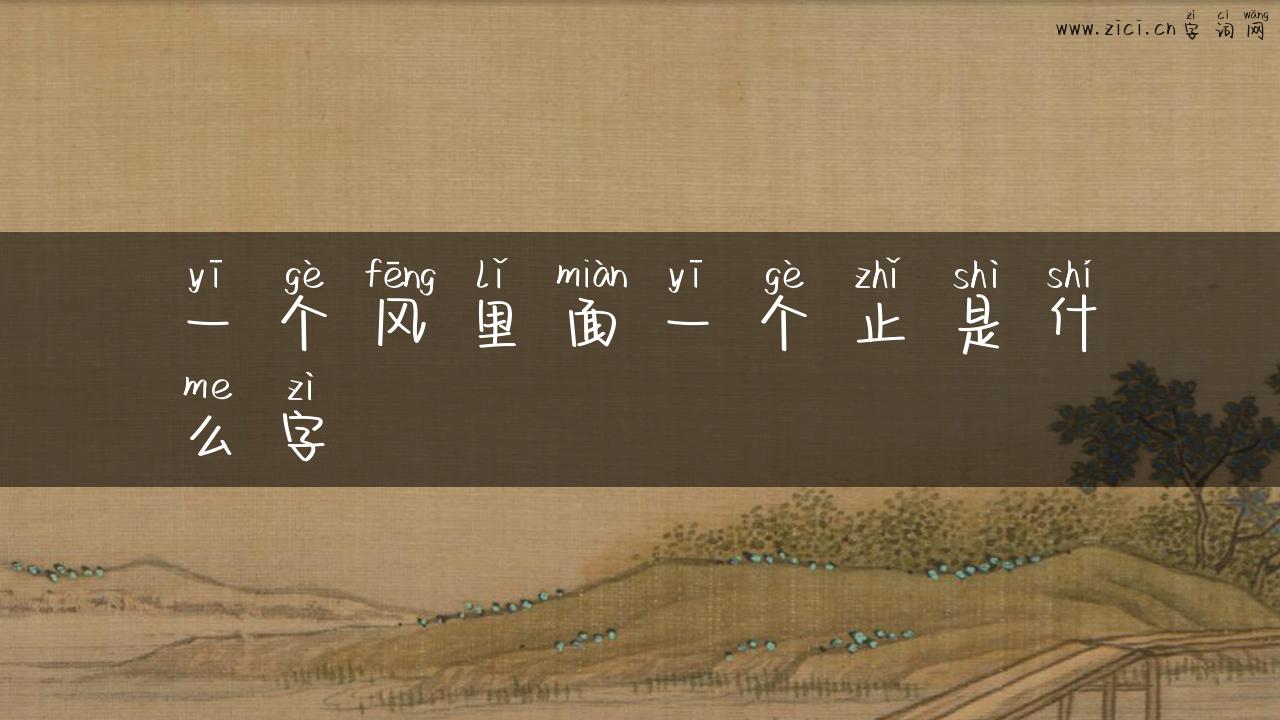 zì cí wǎng
www.zici.cn字词网
yī gè fēng lǐ miàn yī gè zhǐ shì shí
一个风里面一个止是什
me zì
么字